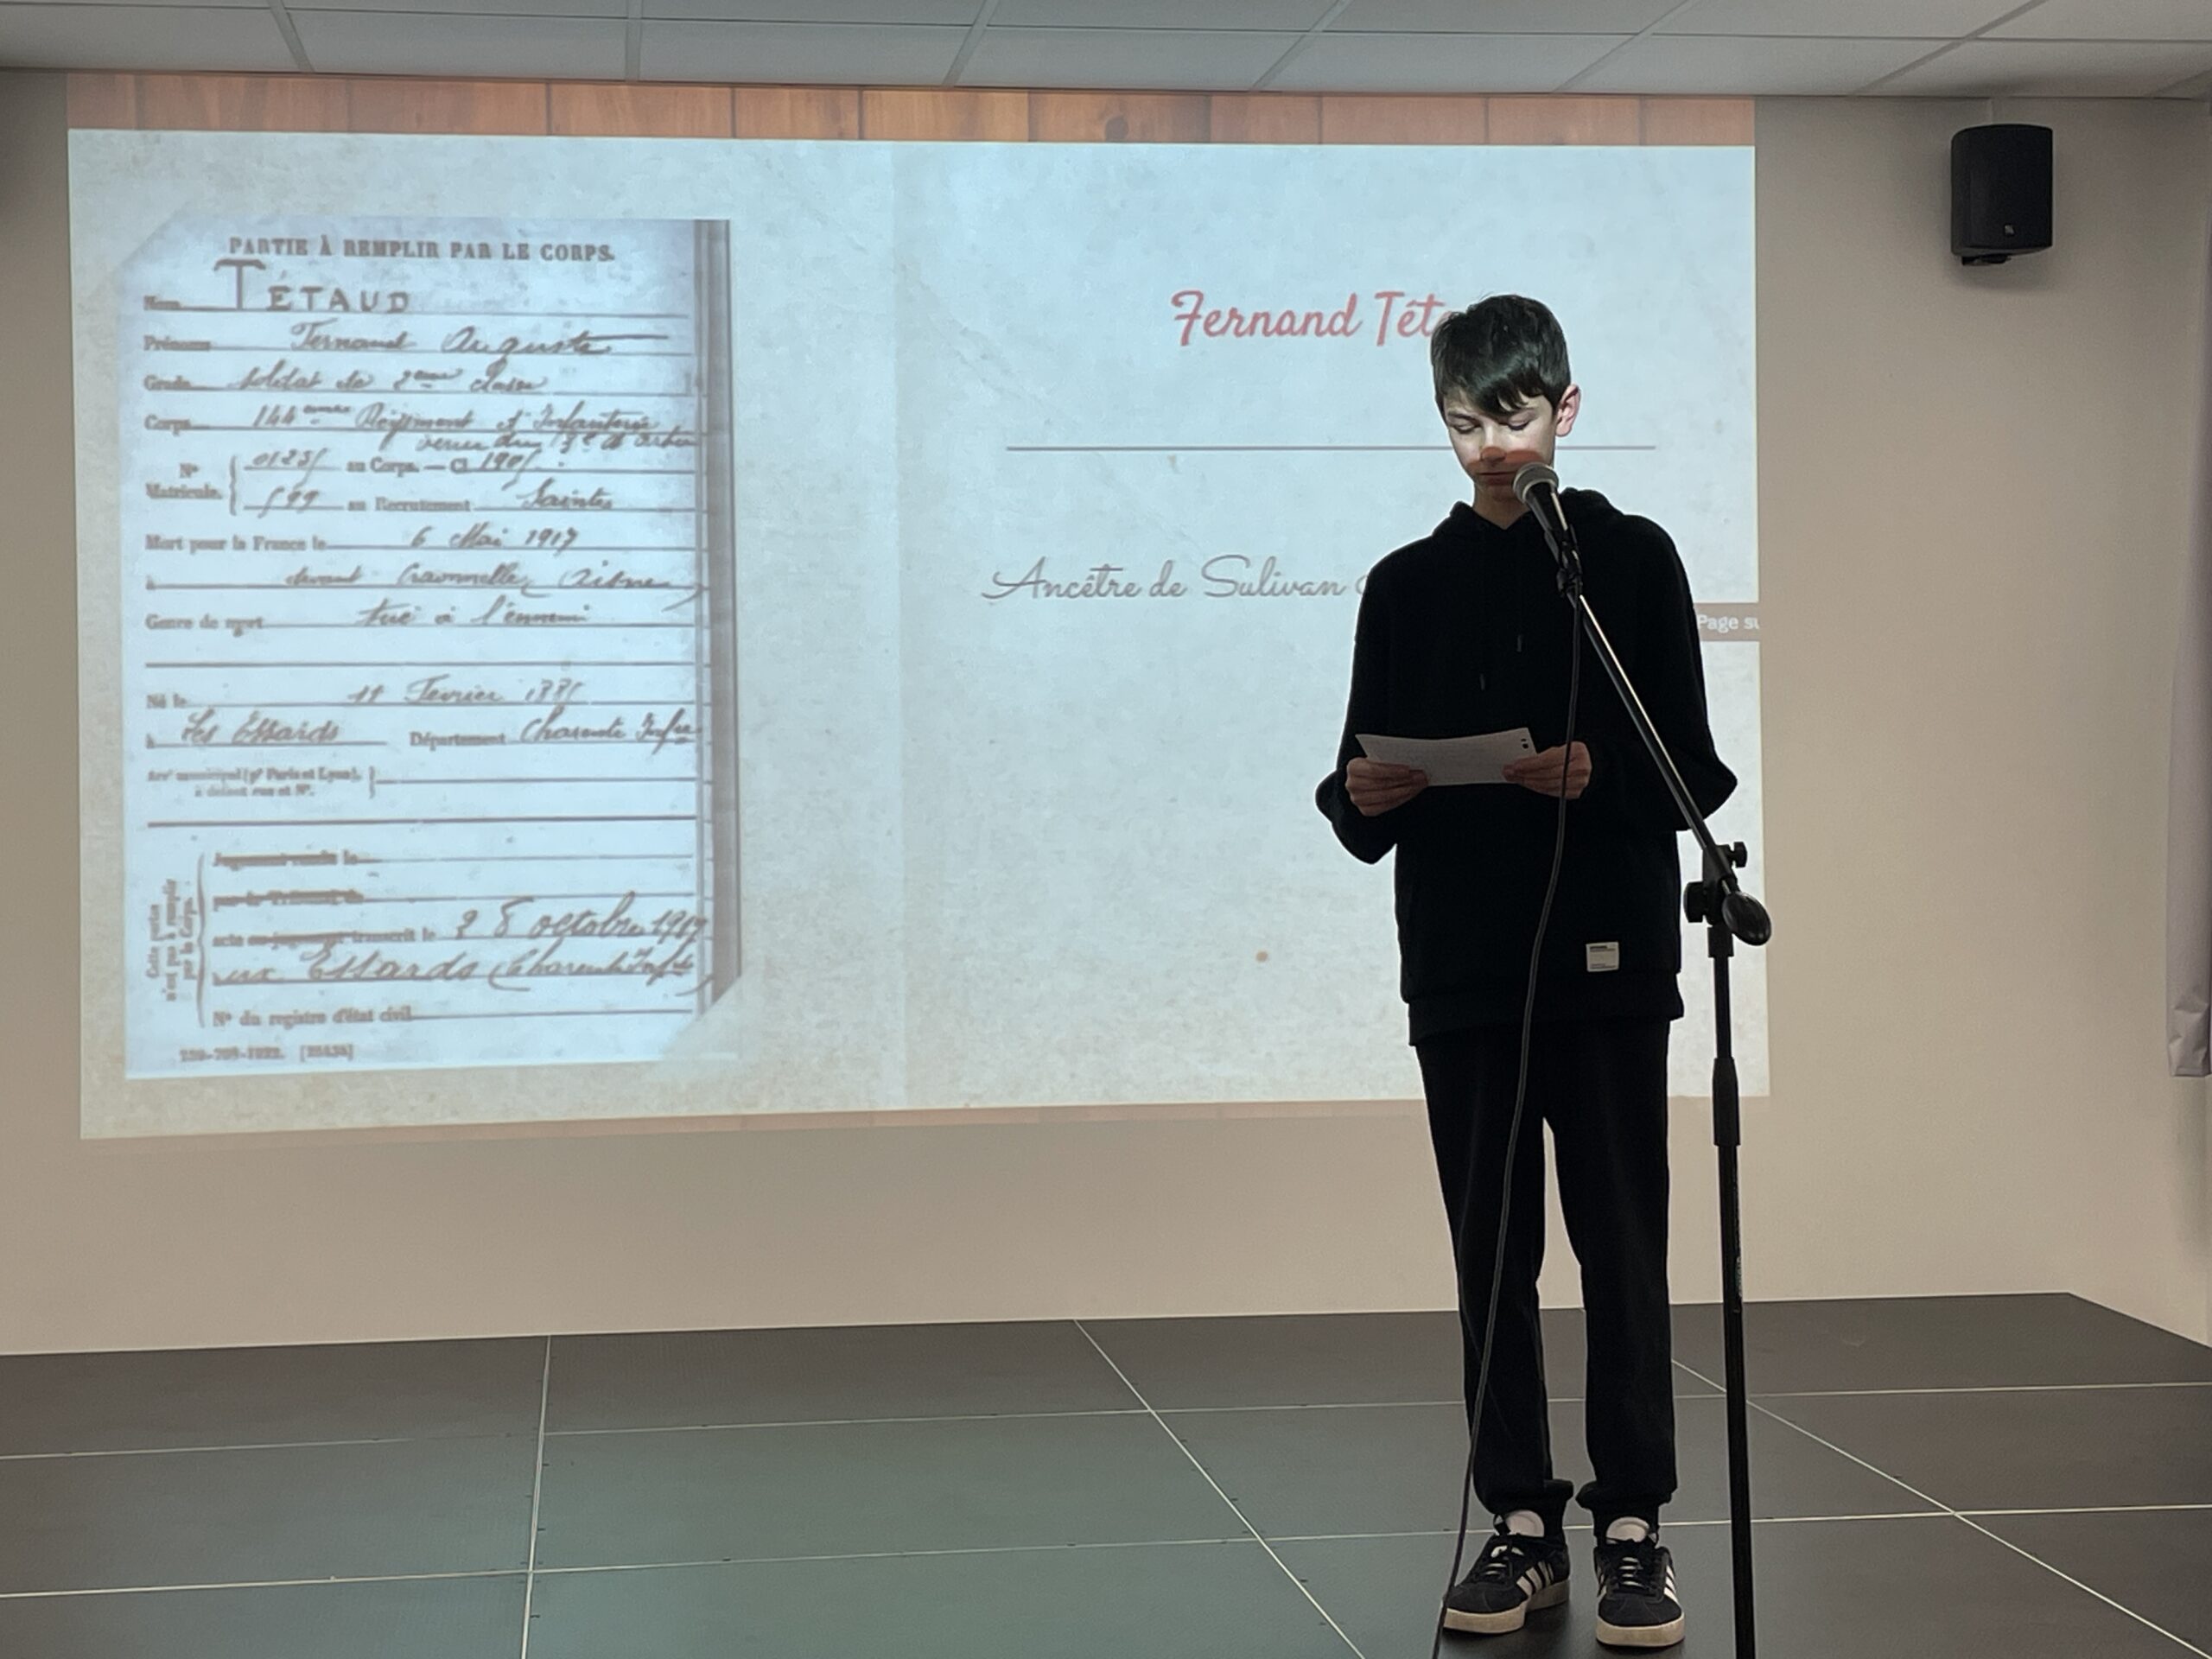 PARTIE À REMPLIR PAR LE CORPS.
Nom TÉTAUD
Prénoms Fernand Auguste
Grade soldat de 2ème classe
Corps 144ème Régiment d'Infanterie
venu du
Nº
Matricule. 0125 au Corps. — Cl. 1905
599 au Recrutement Saintes
Mort pour la France le 6 Mai 1917
à devant Craonnelle (Aisne)
Genre de mort tué à l'ennemi
Né le 11 Fevrier 1885
à Les Essards Département Charente Infre
Arrt municipal (pr Paris et Lyon),
à défaut rue et Nº.
Cette partie
n'est pas à remplir
par le Corps.
Jugement rendu le
par le Tribunal de
acte ou jugement transcrit le 28 octobre 1917
aux Essards (Charente Infre)
Nº du registre d'état civil
[26434]
Fernand Tét
Ancêtre de Sulivan
Page su